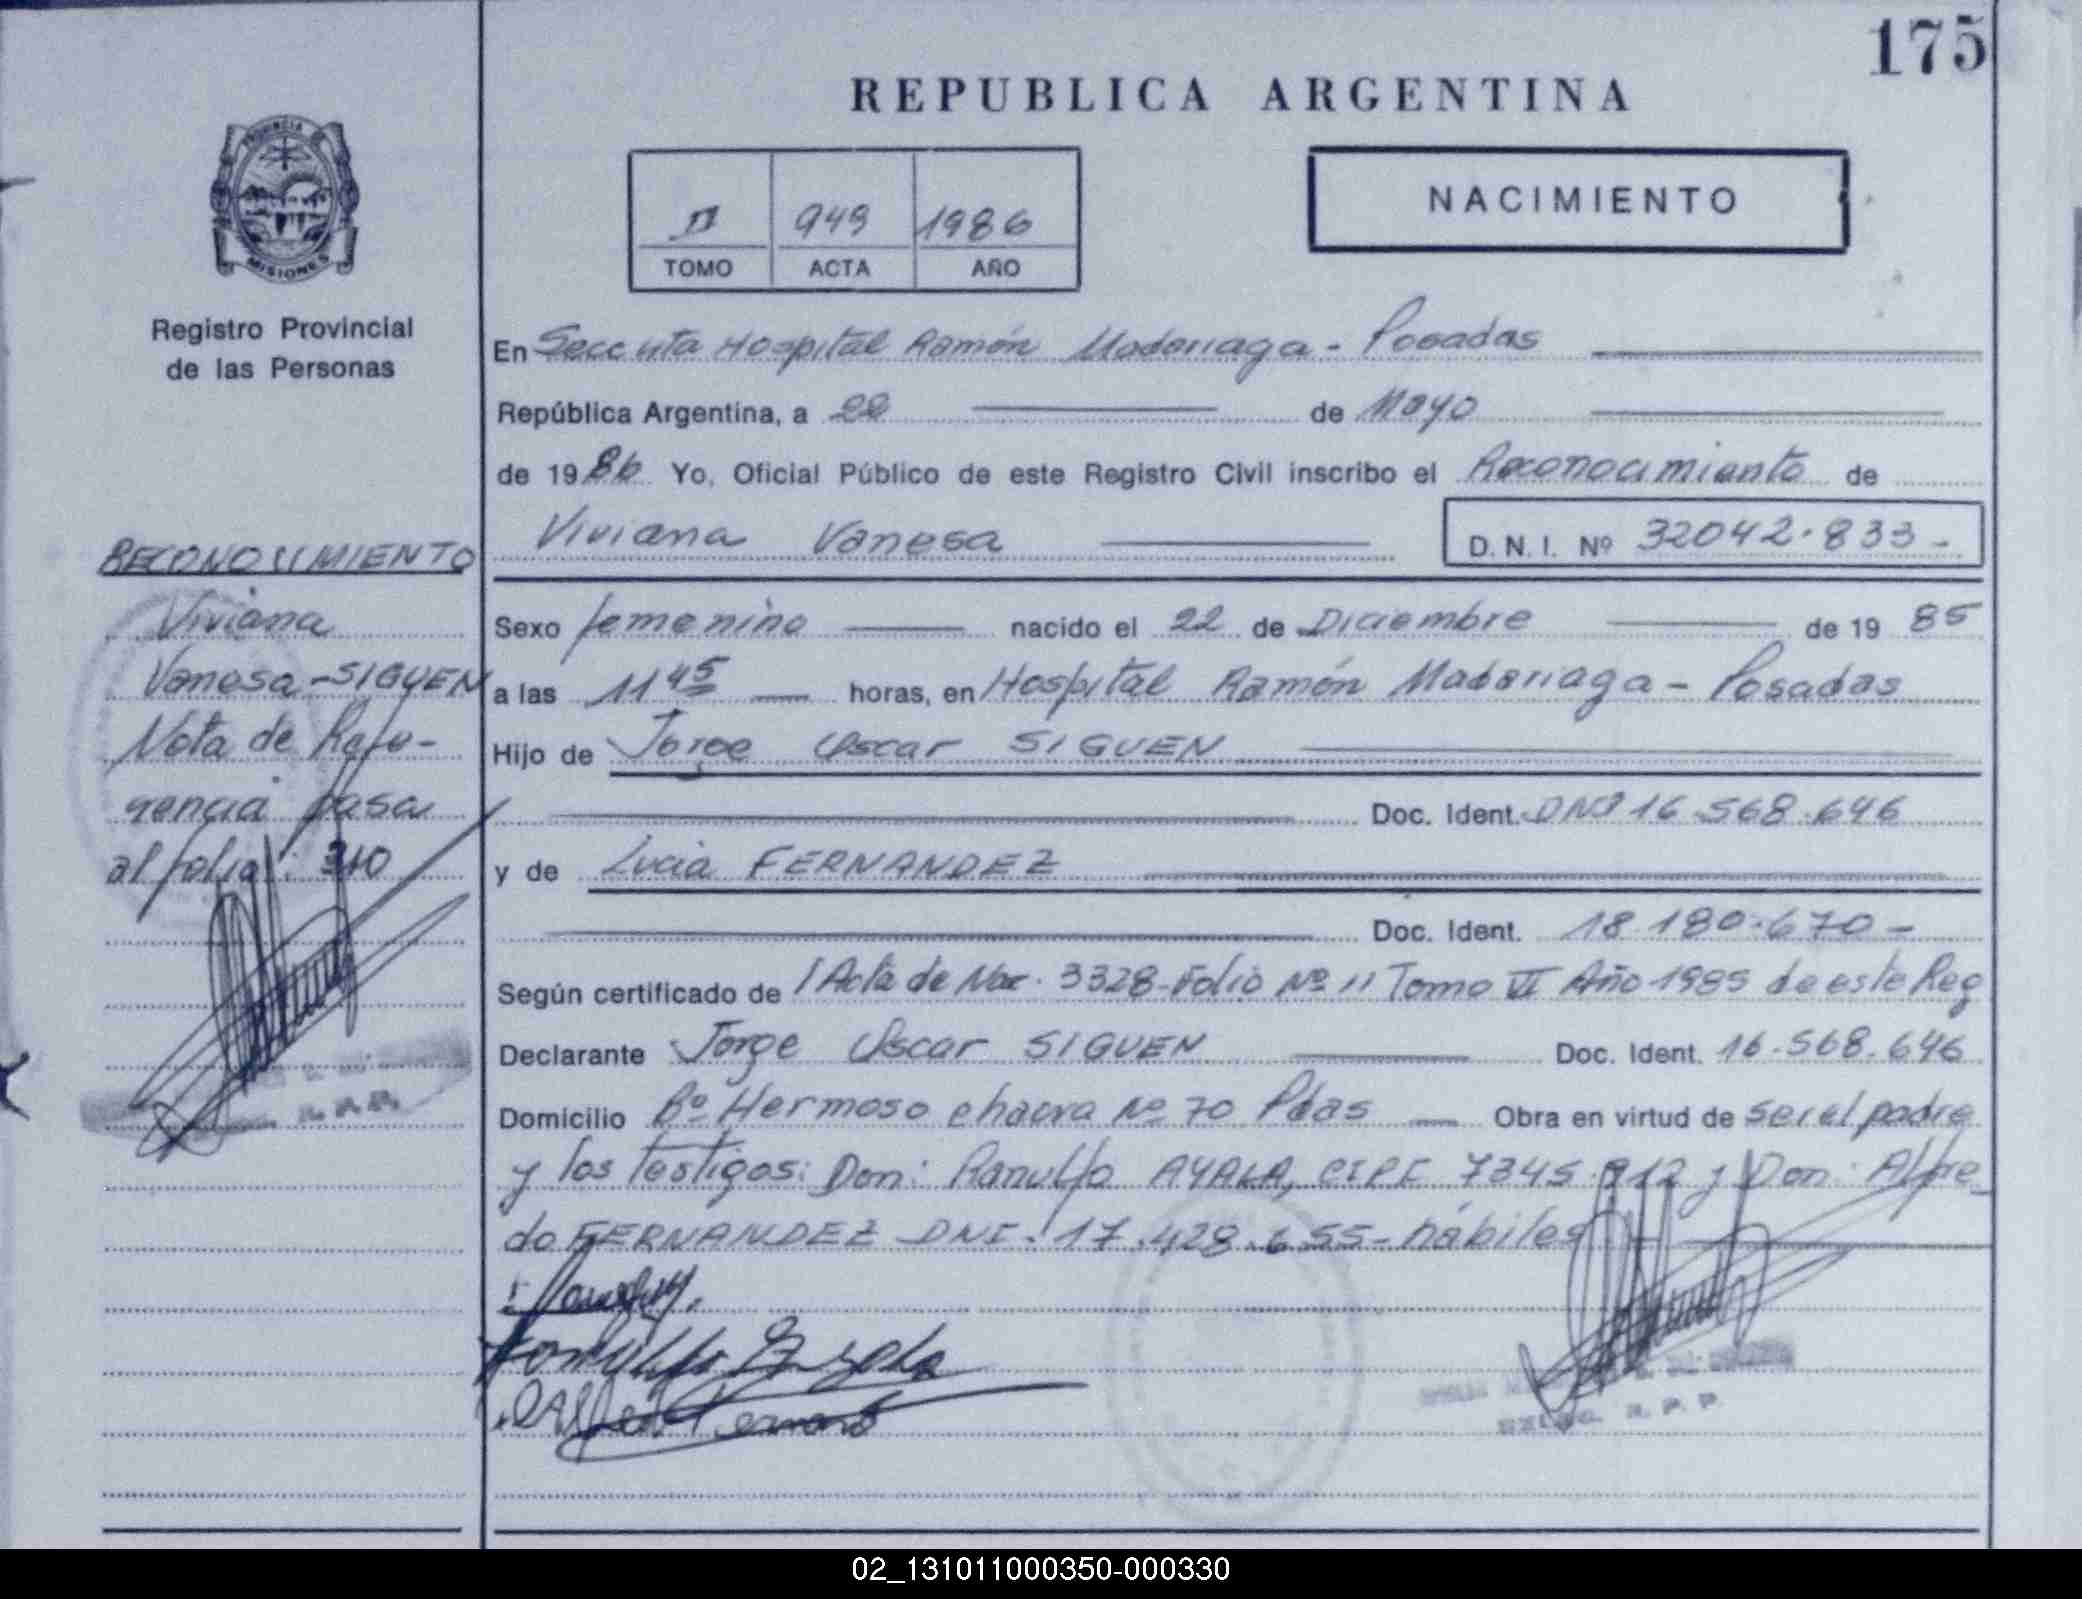 175
REPUBLICA ARGENTINA
PROVINCIA DE
MISIONES
Registro Provincial
de las Personas
II 949 1986
TOMO ACTA AÑO
NACIMIENTO
En Secc uta Hospital Ramón Madariaga - Posadas
República Argentina, a 22 de Mayo
de 1986 Yo, Oficial Público de este Registro Civil inscribo el Reconocimiento de
Viviana Vanesa D. N. I. Nº 32042.833-
Sexo femenino nacido el 22 de Diciembre de 19 85
a las 11 45 horas, en Hospital Ramón Madariaga - Posadas
Hijo de Jorge Oscar SIGUEN
Doc. Ident. DNI 16.568.646
y de Lucia FERNANDEZ
Doc. Ident. 18.180.670-
Según certificado de / Acta de Nac. 3328-Folio Nº 11 Tomo VI Año 1985 de este Reg
Declarante Jorge Oscar SIGUEN Doc. Ident. 16.568.646
Domicilio Bº Hermoso chacra Nº 70 Pdas Obra en virtud de ser el padre
y los testigos: Don: Ranulfo AYALA, CIPE 7345.912 y Don: Alfre_
do FERNANDEZ DNI. 17.428.655- hábiles
RECONOCIMIENTO
Viviana
Vanesa - SIGUEN
Nota de Refe-
rencia pasa
al folio: 310
R. P. P.
02_131011000350-000330